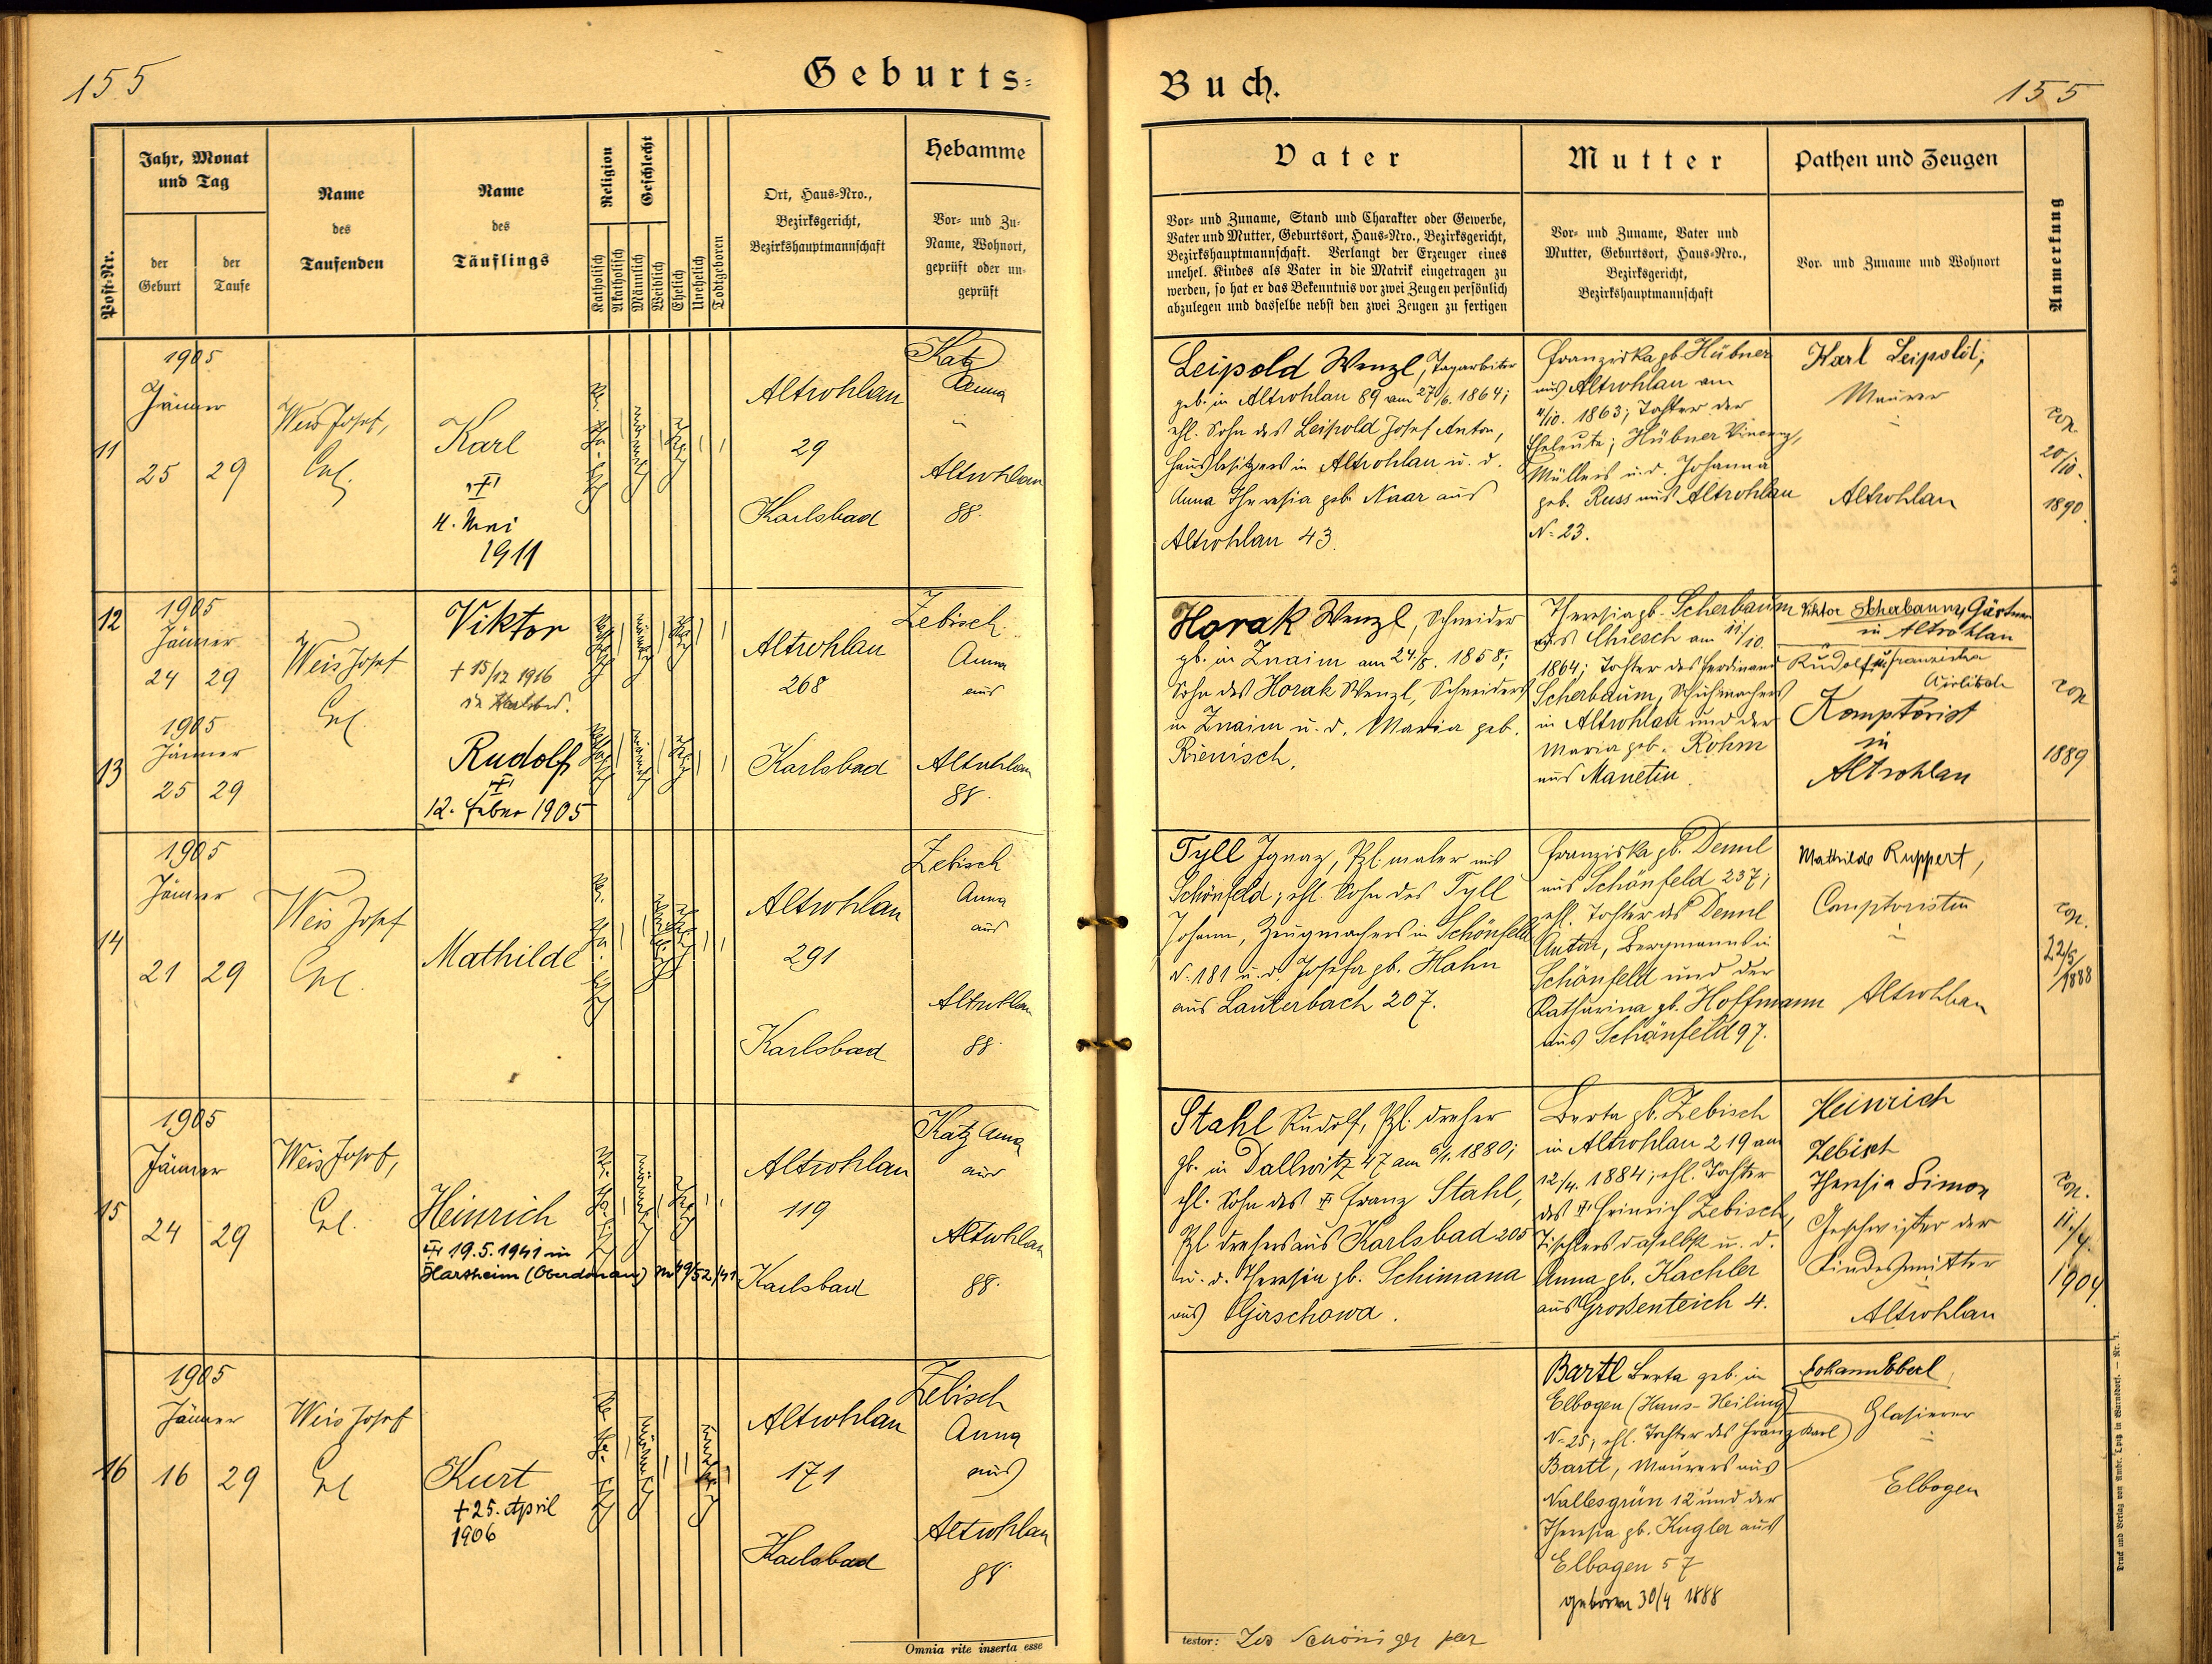 155
Geburts-
Post-Nr.
Jahr, Monat
und Tag
der
Geburt
der
Taufe
Name
des
Taufenden
Name
des
Täuflings
Religion
Katholisch
Akatholisch
Geschlecht
Männlich
Weiblich
Ehelich
Unehelich
Todtgeboren
Ort, Haus-Nro.,
Bezirksgericht,
Bezirkshauptmannschaft
Hebamme
Vor- und Zu-
Name, Wohnort,
geprüft oder un-
geprüft
11
1905
Jänner
25
29
Weis Josef,
Karl
4. Mai
1911
Altrohlau
29
Karlsbad
Katz
Anna
Altrohlau
88.
12
1905
Jänner
24
29
Weis Josef
Viktor
+ 15/12 1916
Altrohlau
268
Karlsbad
Zebisch
Anna
aus
Altrohlau
88.
13
1905
Jänner
25
29
Rudolf
12. Feber 1905
14
1905
Jänner
21
29
Weis Josef
Mathilde
Altrohlau
291
Karlsbad
Zebisch
Anna
aus
Altrohlau
88.
15
1905
Jänner
24
29
Weis Josef,
Heinrich
19.5.1941 in
Hartheim (Oberdonau)
Altrohlau
119
Karlsbad
Katz Anna
aus
Altrohlau
88.
16
1905
Jänner
16
29
Weis Josef
Kurt
+ 25. April
1906
Altrohlau
171
Karlsbad
Zebisch
Anna
aus
Altrohlau
88.
Omnia rite inserta esse
Buch.
155
Vater
Vor- und Zuname, Stand und Charakter oder Gewerbe,
Vater und Mutter, Geburtsort, Haus-Nro., Bezirksgericht,
Bezirkshauptmannschaft. Verlangt der Erzeuger eines
unehel. Kindes als Vater in die Matrik eingetragen zu
werden, so hat er das Bekenntnis vor zwei Zeugen persönlich
abzulegen und dasselbe nebst den zwei Zeugen zu fertigen
Mutter
Vor- und Zuname, Vater und
Mutter, Geburtsort, Haus-Nro.,
Bezirksgericht,
Bezirkshauptmannschaft
Pathen und Zeugen
Vor- und Zuname und Wohnort
Anmerkung
Leipold Wenzl, Tagarbeiter
geb. in Altrohlau 89 am 27/6. 1864;
ehl. Sohn des Leipold Josef Anton,
Hausbesitzers in Altrohlau u. d.
Anna Theresia geb. Naar aus
Altrohlau 43.
Franziska gb. Hübner
aus Altrohlau am
4/10. 1863; Tochter der
Eheleute; Hübner Vincenz,
Müllers u. d. Johanna
geb. Russ aus Altrohlau
N= 23.
Karl Leipold,
Maurer
Altrohlau
cop.
20/10.
1890.
Horak Wenzl, Schneider
gb. in Znaim am 24/5. 1858;
Sohn des Horak Wenzl, Schneiders
in Znaim u. d. Maria geb.
Theresia gb. Scherbaum
aus Chiesch am 11/10.
1864; Tochter des Ferdinand
Scherbaum, Schuhmachers
in Altrohlau und der
Maria geb. Rohm
aus Manetin.
Viktor Scherbaum, Gärtner
in Altrohlau
Rudolf u. Franziska
Komptorist
in
Altrohlau
cop
1889
Tyll Ignaz, Pzl. maler aus
Schönfeld; ehl. Sohn des Tyll
Johann, Zeugmachers in Schönfeld
N. 181 u. d. Josefa gb. Hahn
aus Lauterbach 207.
Franziska gb. Deml
aus Schönfeld 237;
ehl. Tochter des Deml
Anton, Bergmanns in
Schönfeld und der
Katharina gb. Hoffmann
aus Schönfeld 97.
Mathilde Ruppert,
Comptoristin
Altrohlau
cop.
22/5
1888
Stahl Rudolf, Pzl. dreher
gb. in Dallwitz 47 am 6/1. 1880;
ehl. Sohn des Franz Stahl,
Pzl drehers aus Karlsbad 205
u. d. Theresia gb. Schimana
aus Girschowa.
Berta gb. Zebisch
in Altrohlau 219 am
12/4. 1884; ehl. Tochter
des Heinrich Zebisch,
Tischlers daselbst u. d.
Anna gb. Kachler
aus Großenteich 4.
Heinrich
Zebisch
Theresia Simon
Geschwister der
Kindesmutter
Altrohlau
cop.
11./4.
1904.
Bartl Berta geb. in
Elbogen (Hans-Heiling)
N= 25; ehl. Tochter des Franz Karl
Bartl, Maurers aus
Nallesgrün 12 und der
Theresia gb. Kugler aus
Elbogen 57
geboren 30/4 1888
Johann Eberl,
Glasierer
Elbogen
testor:
Druck und Verlag von Ambr. Opitz in Warnsdorf. — Nr. 1.